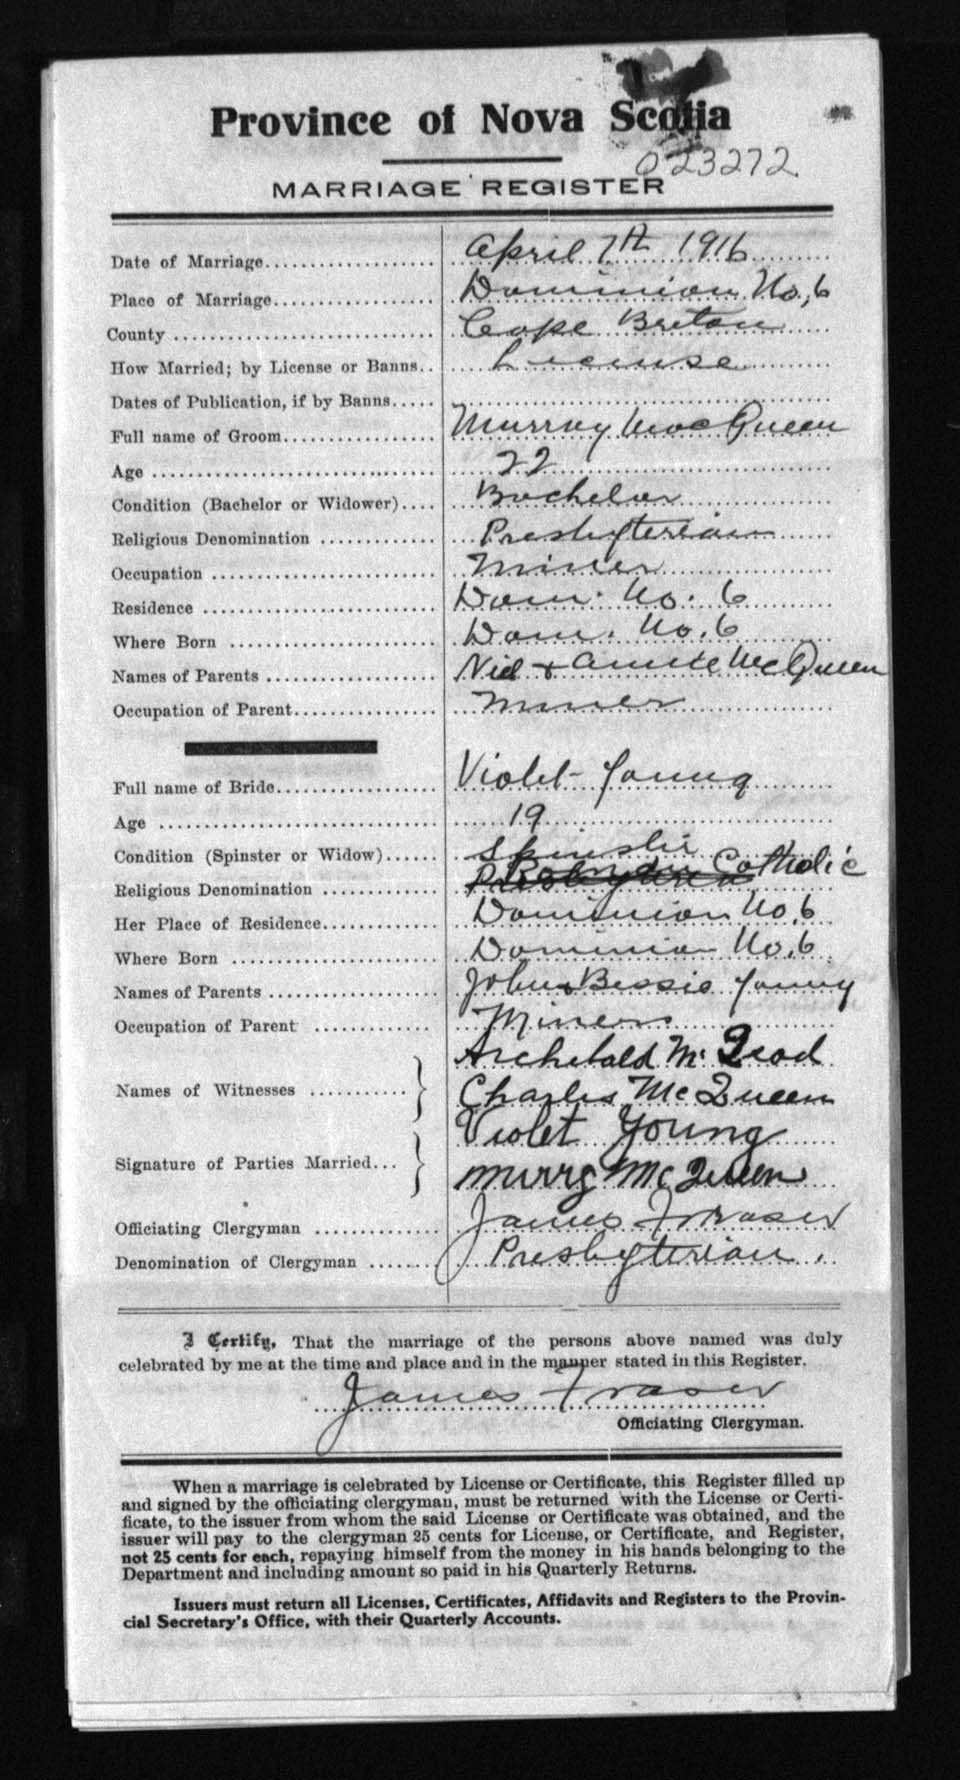 Province of Nova Scotia
023272.
MARRIAGE REGISTER
Date of Marriage.................... April 7th 1916
Place of Marriage................... Dominion No. 6
County .............................. Cape Breton
How Married; by License or Banns.. License
Dates of Publication, if by Banns.....
Full name of Groom.................. Murray MacQueen
Age ................................. 22
Condition (Bachelor or Widower).... Bachelor
Religious Denomination .............. Presbyterian
Occupation ........................... Miner
Residence ............................ Dom. No. 6
Where Born .......................... Dom. No. 6
Names of Parents .................... Niel + Annie McQueen
Occupation of Parent................. Miner
Full name of Bride................... Violet Young
Age ................................. 19
Condition (Spinster or Widow)...... Spinster
Religious Denomination .............. Roman Catholic
Her Place of Residence.............. Dominion No. 6
Where Born ......................... Dominion No. 6
Names of Parents .................... John & Bessie Young
Occupation of Parent .............. Miners
Archebald Mc
Names of Witnesses ...........
Charles McQueen
Violet Young
Signature of Parties Married...
Murry McQueen
Officiating Clergyman ............... James Fraser
Denomination of Clergyman ........ Presbyterian.
I Certify, That the marriage of the persons above named was duly
celebrated by me at the time and place and in the manner stated in this Register.
James Fraser
Officiating Clergyman.
When a marriage is celebrated by License or Certificate, this Register filled up
and signed by the officiating clergyman, must be returned with the License or Certi-
ficate, to the issuer from whom the said License or Certificate was obtained, and the
issuer will pay to the clergyman 25 cents for License, or Certificate, and Register,
not 25 cents for each, repaying himself from the money in his hands belonging to the
Department and including amount so paid in his Quarterly Returns.
Issuers must return all Licenses, Certificates, Affidavits and Registers to the Provin-
cial Secretary's Office, with their Quarterly Accounts.